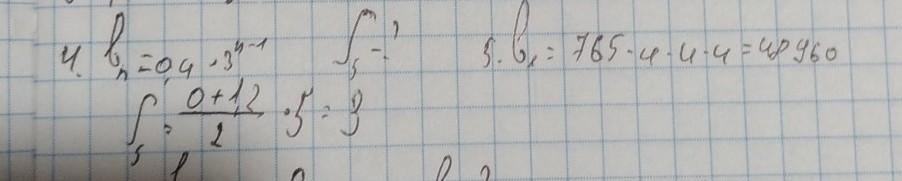 4. b_n = 0,4 · 3^{n-1} S_5 - ? 5. b_1 = 765 · 4 · 4 · 4 = 48960
S_5 = \frac{0+1,2}{2} · 5 = 3